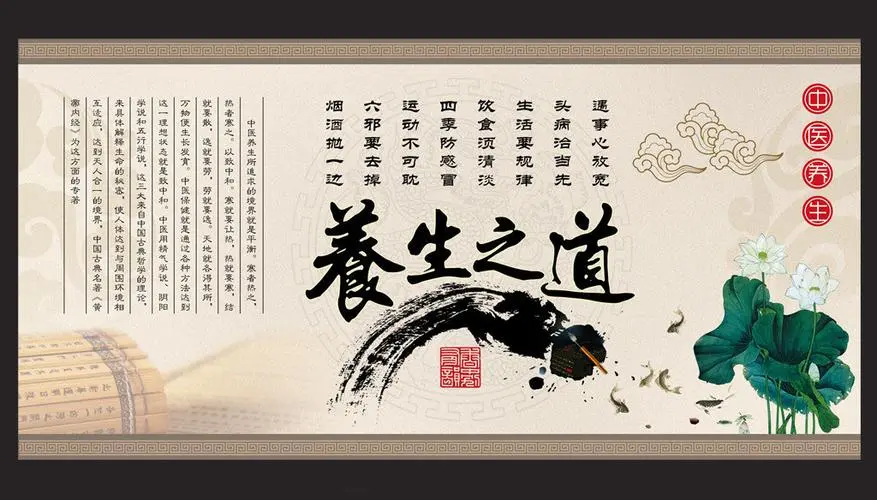 中医养生
遇事心放宽
头病治当先
生活要规律
饮食须清淡
四季防感冒
运动不可耽
六邪要去掉
烟酒抛一边
養生之道
中医养生所追求的境界就是平衡。寒者热之,
热者寒之。以致中和。寒就要让热,热就要寒,结
就要散,逸就要劳,劳就要逸。天地就各得其所,
万物便生长发育。中医保健就是通过各种方法达到
这一理想状态就是致中和。中医用精气学说、阴阳
学说和五行学说,这三大来自中国古典哲学的理论,
来具体解释生命的秘密,使人体达到与周围环境相
互适应,达到天人合一的境界,中国古典名著《黄
帝内经》为这方面的专著